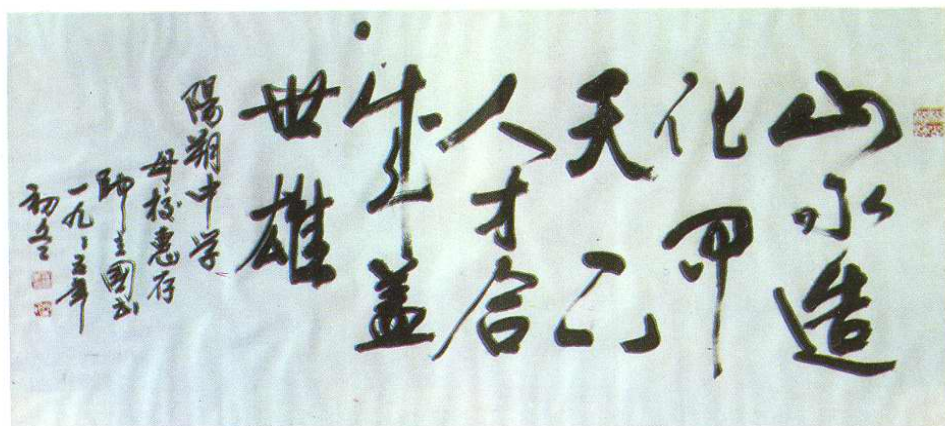 山水造
化甲
天下
人才合
盖
世雄
陽朔中学
母校惠存
帥立國书
一九八五年
初冬